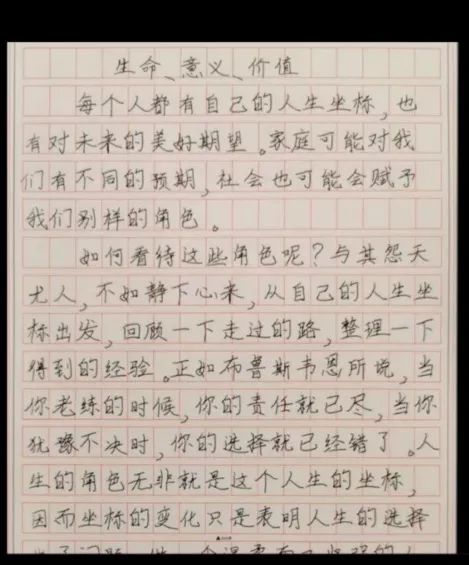 生命、意义、价值
每个人都有自己的人生坐标,也
有对未来的美好期望。家庭可能对我
们有不同的预期,社会也可能会赋予
我们别样的角色。
如何看待这些角色呢?与其怨天
尤人,不如静下心来,从自己的人生坐
标出发,回顾一下走过的路,整理一下
得到的经验。正如布鲁斯韦恩所说,当
你老练的时候,你的责任就已尽,当你
犹豫不决时,你的选择就已经错了。人
生的角色无非就是这个人生的坐标,
因而坐标的变化只是表明人生的选择